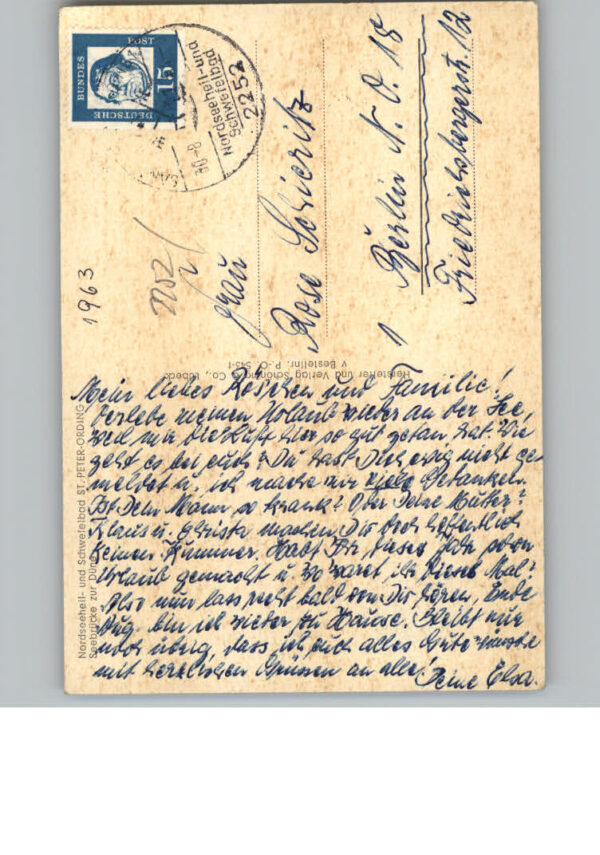 DEUTSCHE
BUNDES
POST
15
Nordseeheil- und
Schwefelbad
2252
30.-8.
1963
Frau
Rose Schieritz
1 Berlin N. O. 18
Friedrichsbergerstr. 12
Hersteller und Verlag Schöning & Co., Lübeck
Bestellnr. P.-O. 543-I
Nordseeheil- und Schwefelbad ST. PETER-ORDING
Seebrücke zur Düne
Mein liebes Röschen und Familie!
Verlebe meinen Urlaub wieder an der See,
weil mir die Luft hier so gut getan hat. Wie
geht es bei euch? Du hast Dich ewig nicht ge-
meldet u. ich mache mir viele Gedanken.
Ist Dein Mann so krank? Oder Deine Mutter?
Klaus u. Christa machen Dir doch hoffentlich
keinen Kummer. Habt Ihr dieses Jahr schon
Urlaub gemacht u. wo waret ihr dieses Mal?
Also nun lass recht bald von Dir hören, Ende
Aug. bin ich wieder zu Hause. Bleibt nur
noch übrig, dass ich euch alles Gute wünsche
mit herzlichen Grüssen an alle!
Deine Elsa.